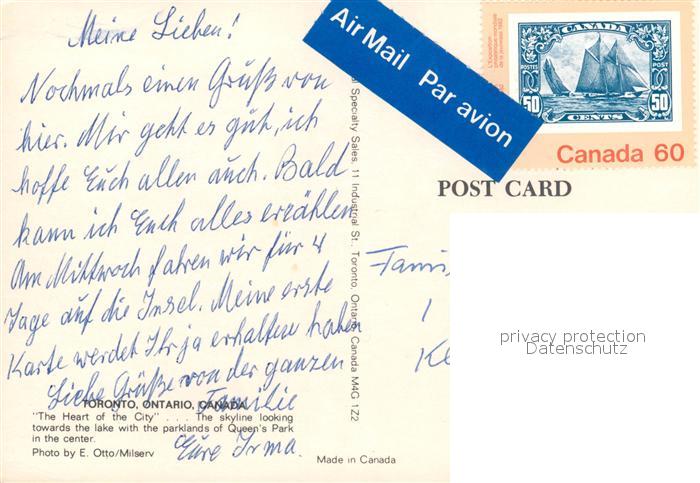 Meine Lieben!
Nochmals einen Gruß von
hier. Mir geht es gut, ich
hoffe Euch allen auch. Bald
kann ich Euch alles erzählen
Am Mittwoch fahren wir für 4
Tage auf die Insel. Meine erste
Karte werdet Ihr ja erhalten haben
Liebe Grüße von der ganzen
Familie
Eure Irma.
TORONTO, ONTARIO, CANADA
"The Heart of the City" . . . . The skyline looking
towards the lake with the parklands of Queen's Park
in the center.
Photo by E. Otto/Milserv
Made in Canada
al Specialty Sales, 11 Industrial St., Toronto, Ontario, Canada M4G 1Z2
Air Mail Par avion
CANADA
POSTES POST
50 CENTS 50
Canada 60
POST CARD
privacy protection
Datenschutz